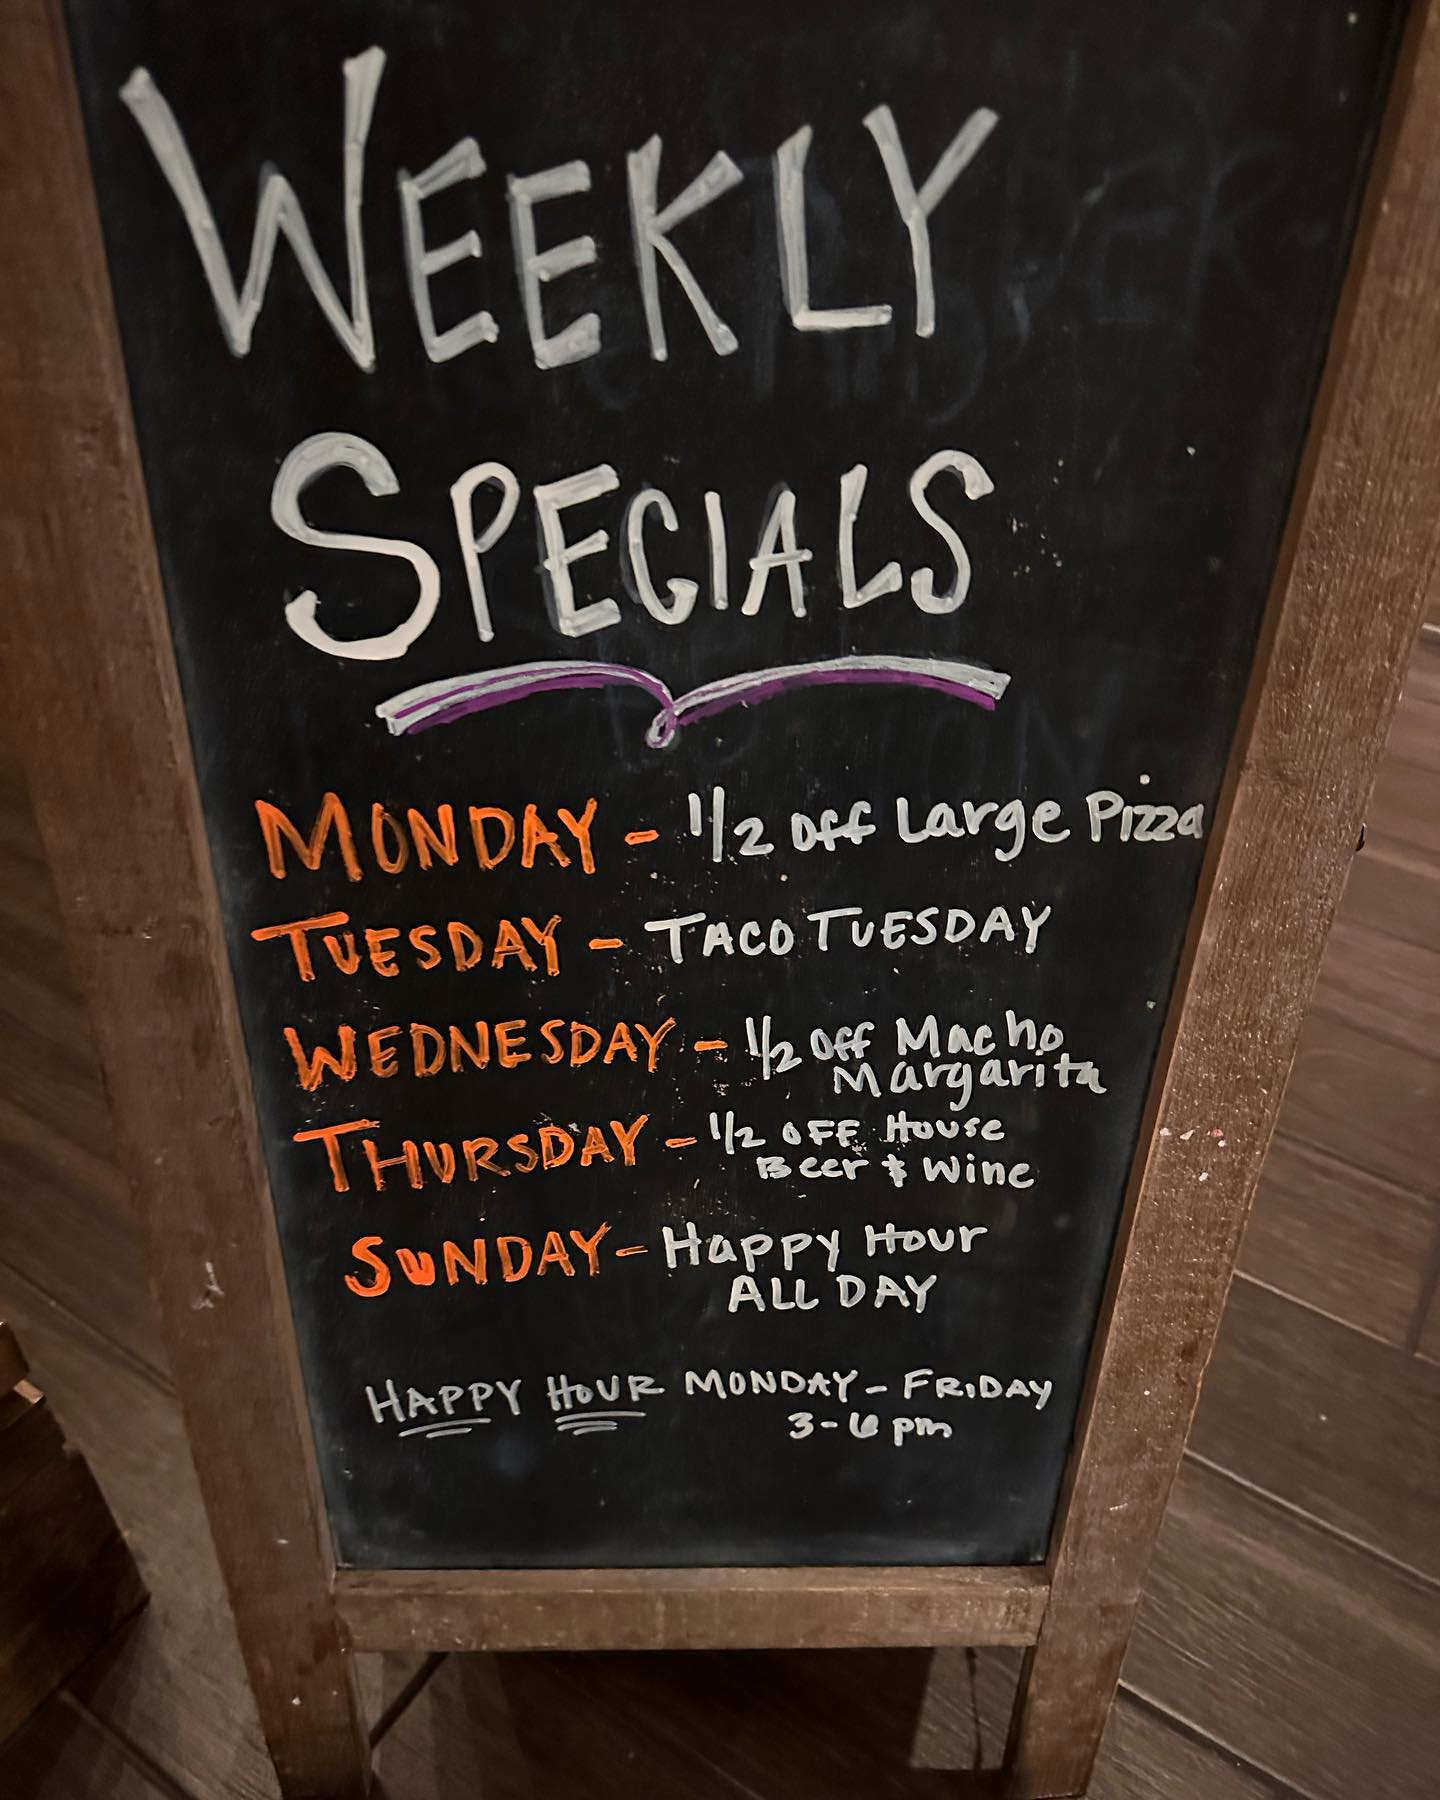 WEEKLY
SPECIALS
MONDAY - 1/2 off Large Pizza
TUESDAY - TACO TUESDAY
WEDNESDAY - 1/2 off Macho
Margarita
THURSDAY - 1/2 OFF House
Beer & Wine
SUNDAY - Happy Hour
ALL DAY
HAPPY HOUR MONDAY - FRIDAY
3-6 pm